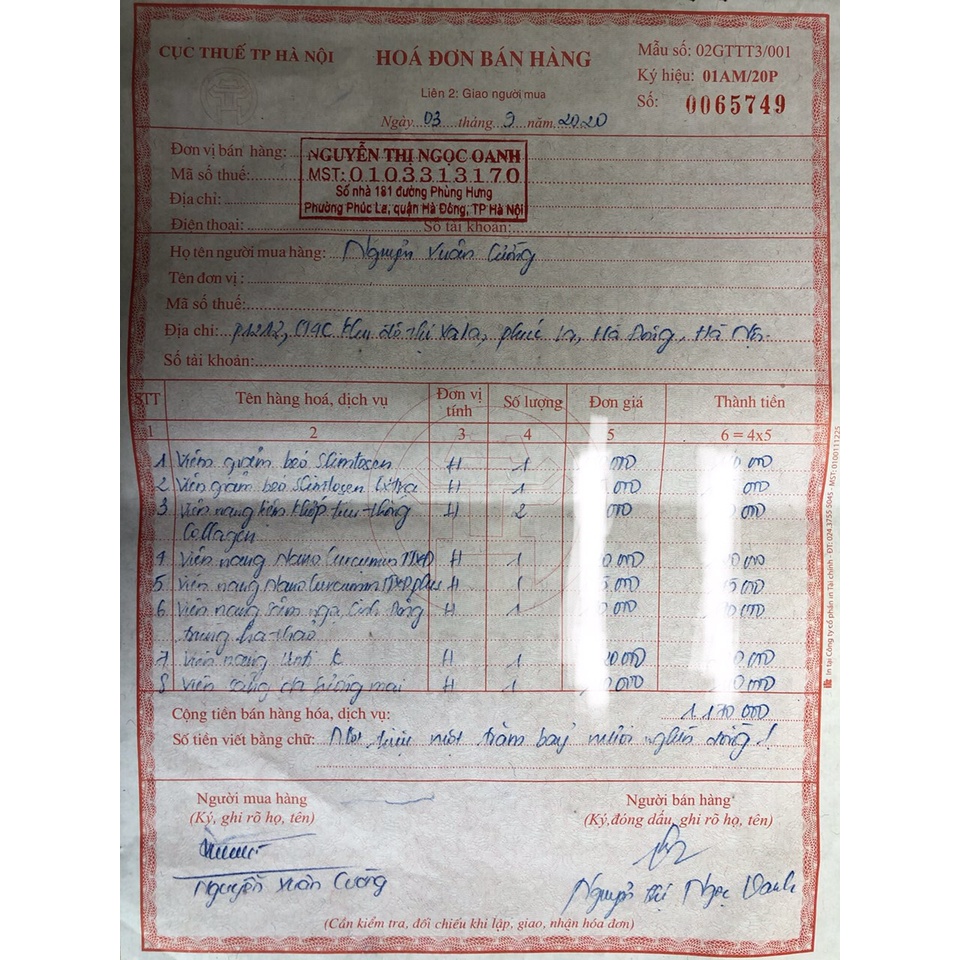 CỤC THUẾ TP HÀ NỘI
HOÁ ĐƠN BÁN HÀNG
Liên 2: Giao người mua
Mẫu số: 02GTTT3/001
Ký hiệu: 01AM/20P
Số: 0065749
Ngày 03 tháng 9 năm 2020
Đơn vị bán hàng: NGUYỄN THỊ NGỌC OANH
Mã số thuế: MST: 0103313170
Địa chỉ: Số nhà 181 đường Phùng Hưng
Phường Phúc La, quận Hà Đông, TP Hà Nội
Điện thoại: Số tài khoản:
Họ tên người mua hàng: Nguyễn Xuân Cường
Tên đơn vị:
Mã số thuế:
Địa chỉ: P1212, Khu đô thị Xa la, phúc la, Hà Đông, Hà Nội
Số tài khoản:
STT Tên hàng hoá, dịch vụ Đơn vị tính Số lượng Đơn giá Thành tiền
1 2 3 4 5 6 = 4x5
1 Viên giảm béo Slimtosen H 1 000 000
2 Viên giảm béo Slimtosen Extra H 1 000 000
3 Viên nang H 2 000 000
Collagen
4 Viên nang Nano Curcumin H 1 0 000 0 000
5 Viên nang Nano Curcumin plus H 1 5 000 5 000
6 Viên nang Sâm nga, Linh Đông H 1 0 000 0 000
trùng hạ thảo
7 Viên nang Unti K H 1 0 000 0 000
8 Viên sáng da Sương mai H 1 0 000 0 000
Cộng tiền bán hàng hóa, dịch vụ: 1.170 000
Số tiền viết bằng chữ: Một triệu một trăm bảy mươi nghìn đồng!
Người mua hàng Người bán hàng
(Ký, ghi rõ họ, tên) (Ký,đóng dấu, ghi rõ họ, tên)
Nguyễn Xuân Cường Nguyễn Thị Ngọc Oanh
(Cần kiểm tra, đối chiếu khi lập, giao, nhận hóa đơn)
In tại Công ty cổ phần In Tài chính - ĐT: 024.3755 5045 - MST: 0100111225